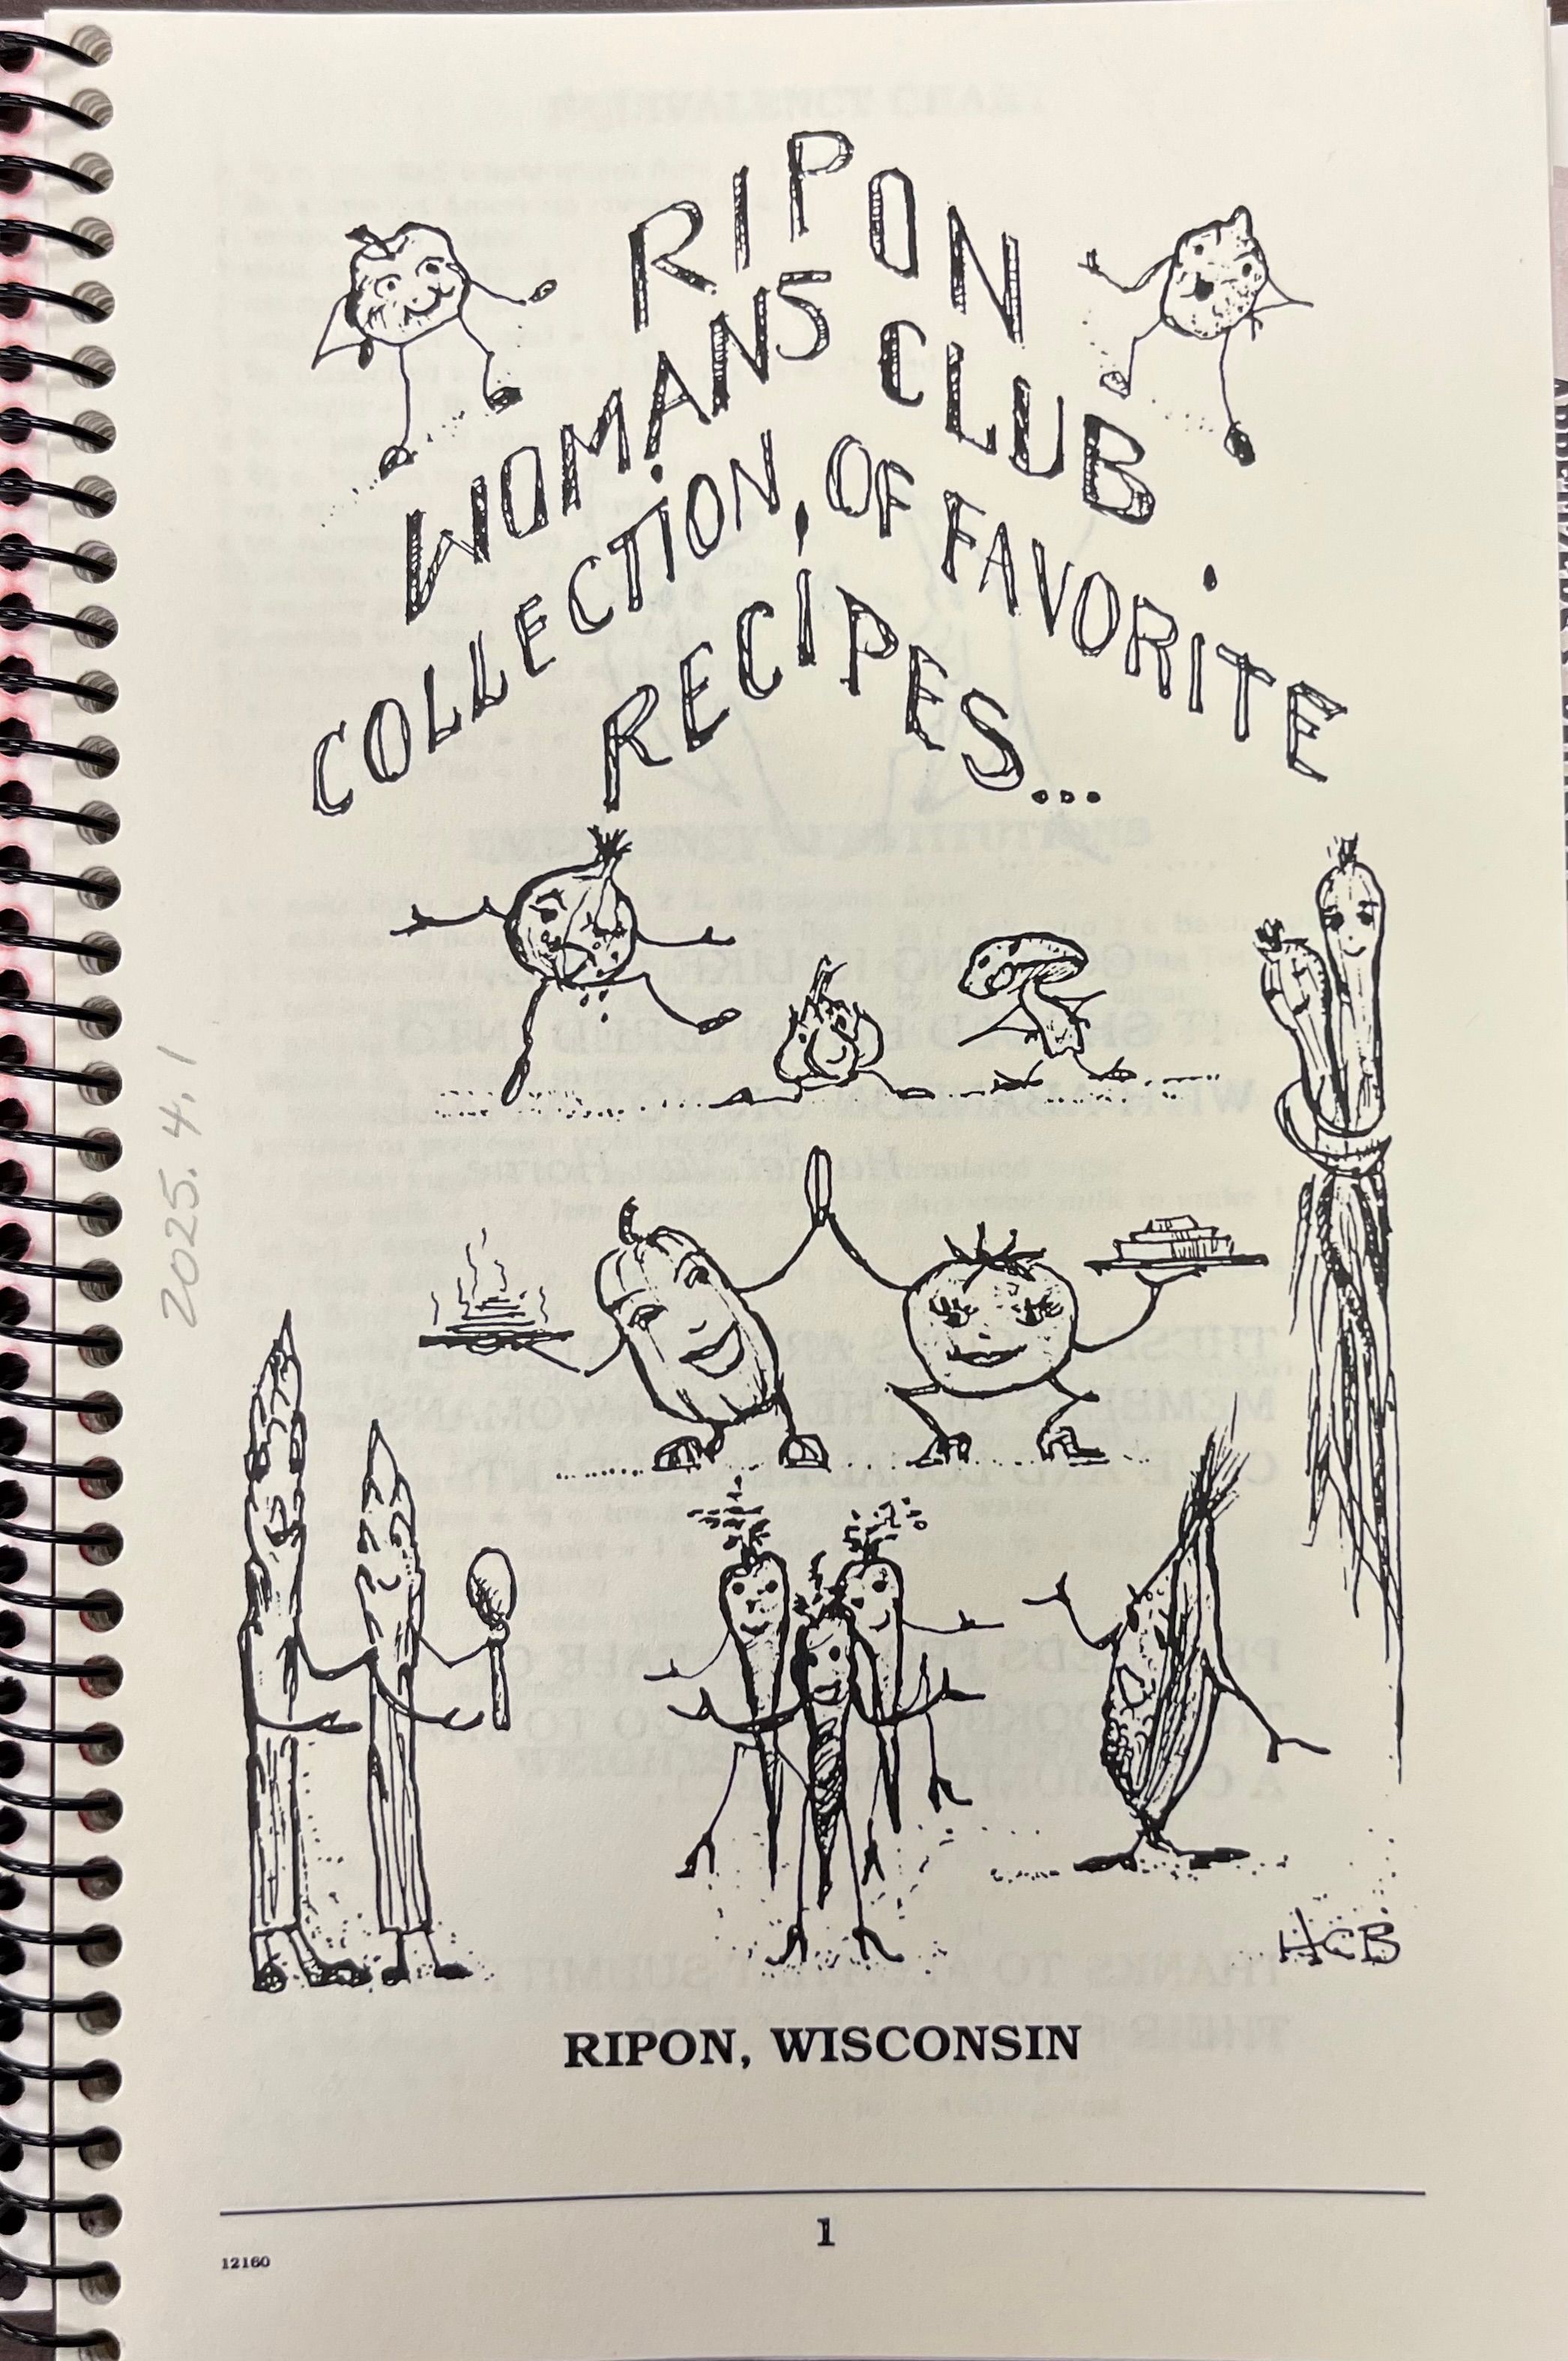 RIPON
WOMANS CLUB
COLLECTION OF FAVORITE
RECIPES...
2025.4.1
HCB
RIPON, WISCONSIN
1
12160